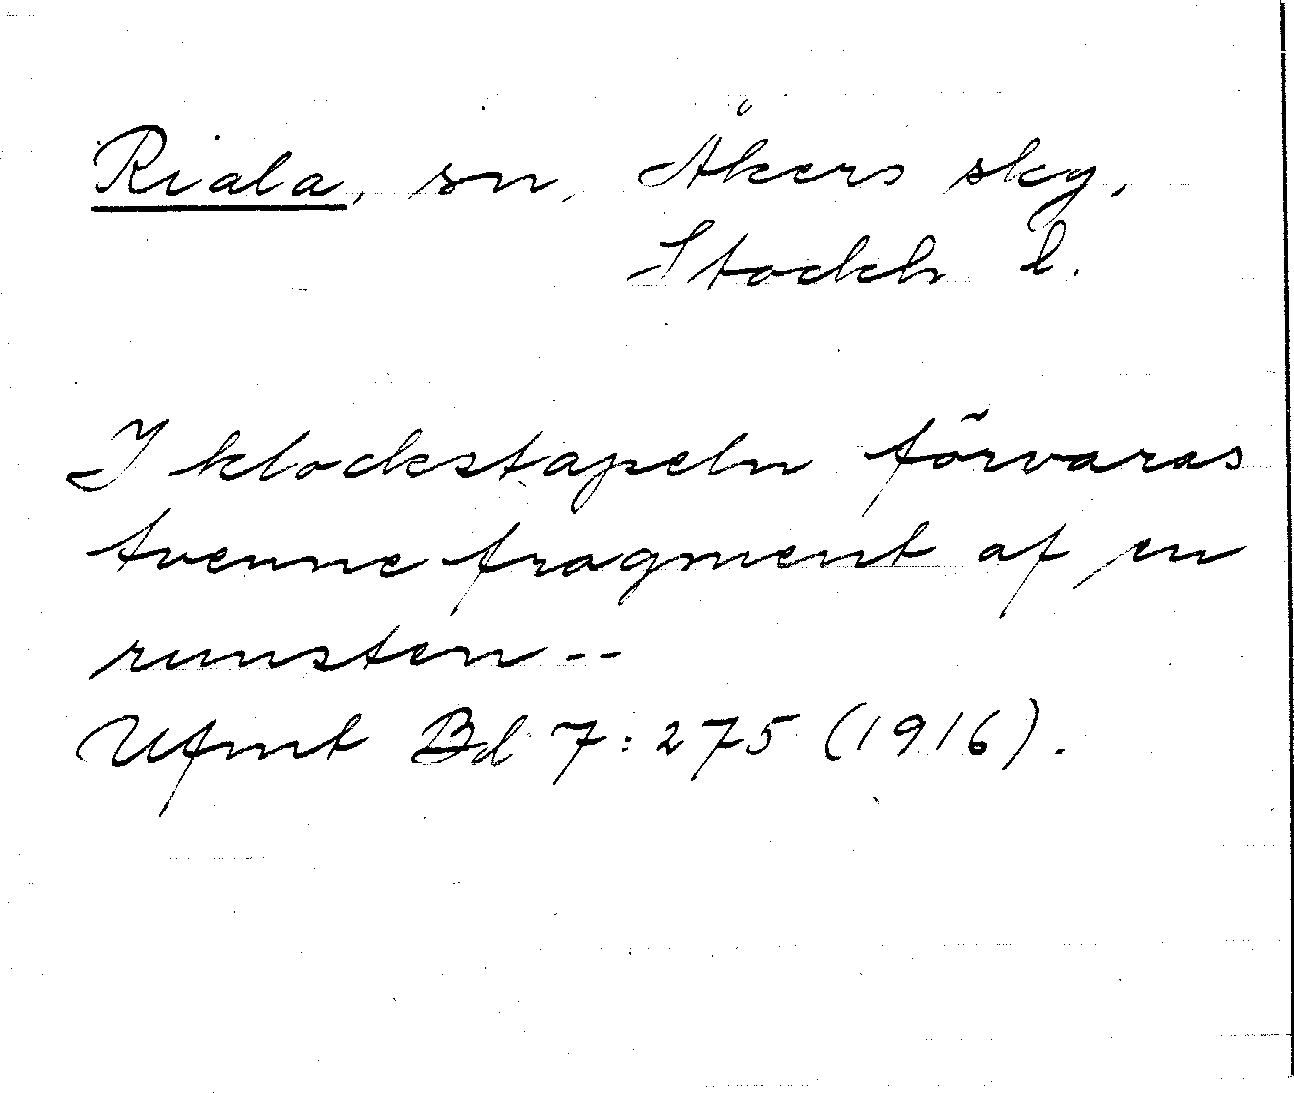 Riala, sn, Åkers skg.
Stockh l.
I klockstapeln förvaras
tvenne fragment af en
runsten --
Ufmt Bd 7: 275 (1916).